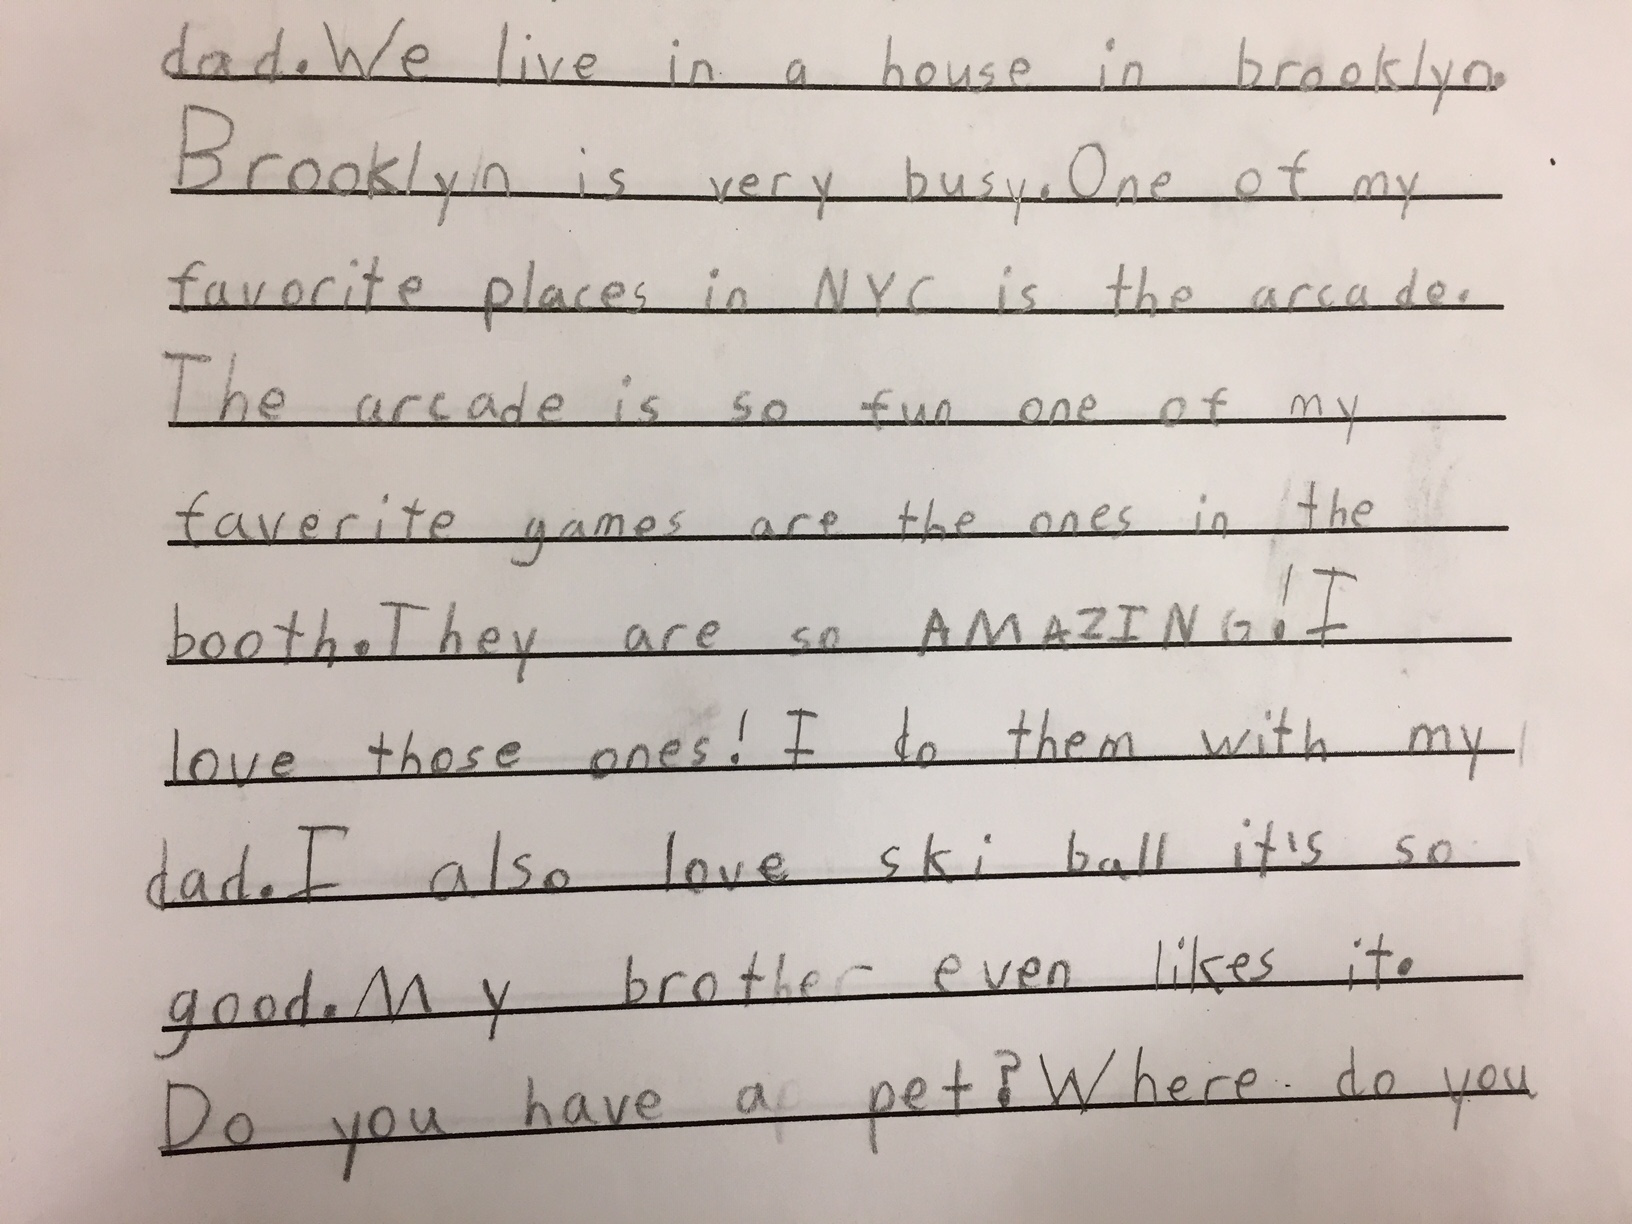 dad. We live in a house in brooklyn.
Brooklyn is very busy. One of my
favorite places in NYC is the arcade.
The arcade is so fun one of my
faverite games are the ones in the
booth. They are so AMAZING! I
love those ones! I do them with my
dad. I also love ski ball it's so
good. My brother even likes it.
Do you have a pet? Where do you